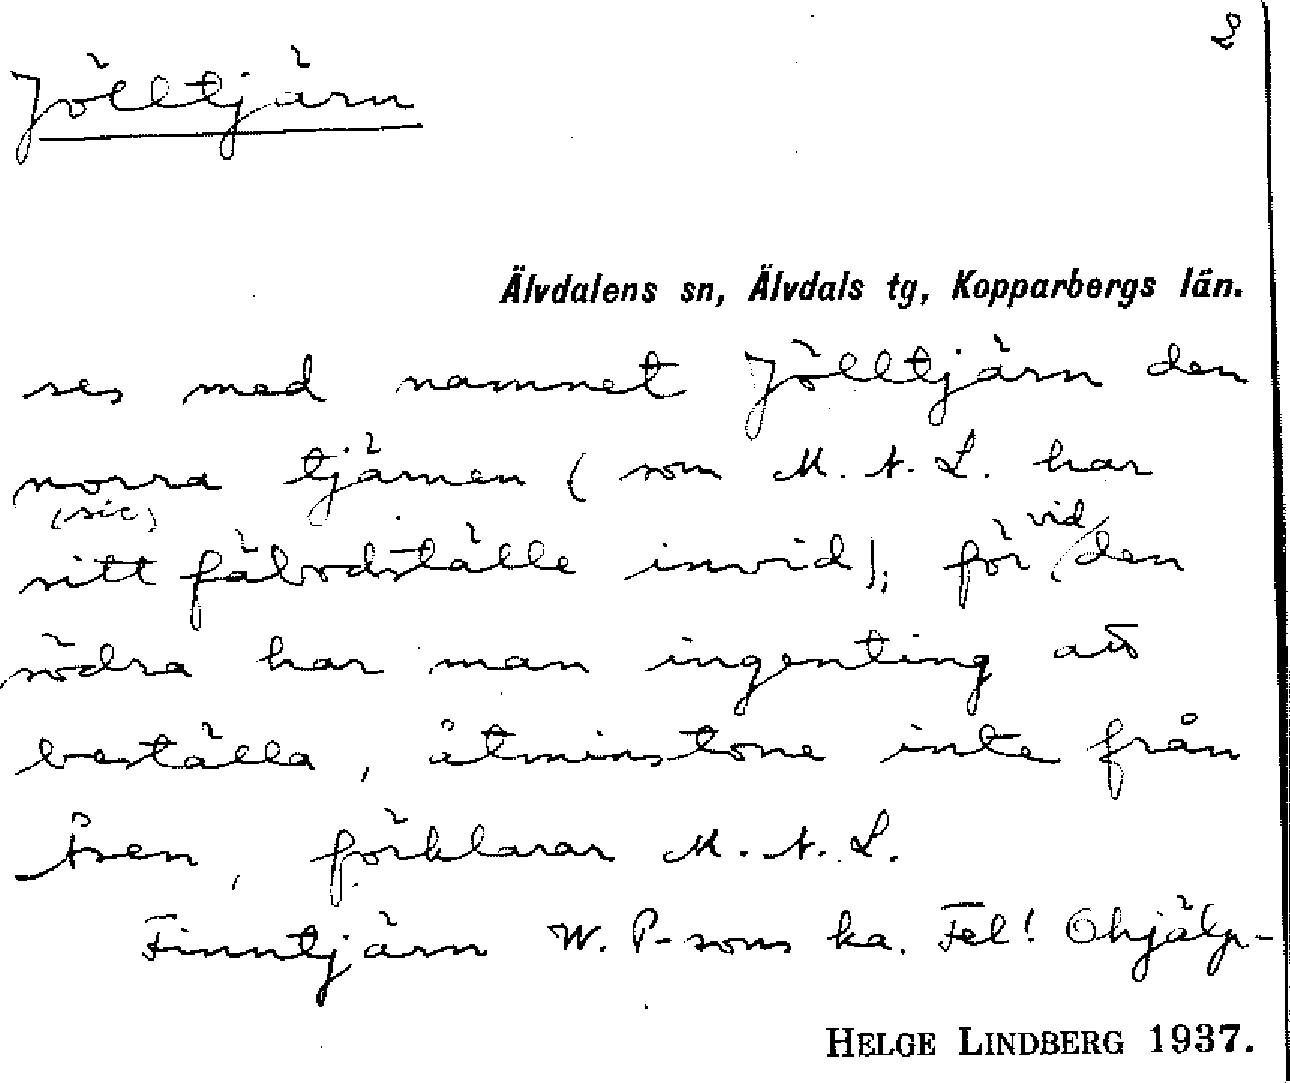 2
Jölltjärn
Älvdalens sn, Älvdals tg, Kopparbergs län.
ses med namnet Jölltjärn den
norra tjärnen (som M. A. L. har
(sic)
sitt fäbodställe invid); för vid den
södra har man ingenting att
beställa, åtminstone inte från
Åsen, förklarar M. A. L.
Finntjärn W. P-sons ka. Fel! Ohjälp-
HELGE LINDBERG 1937.